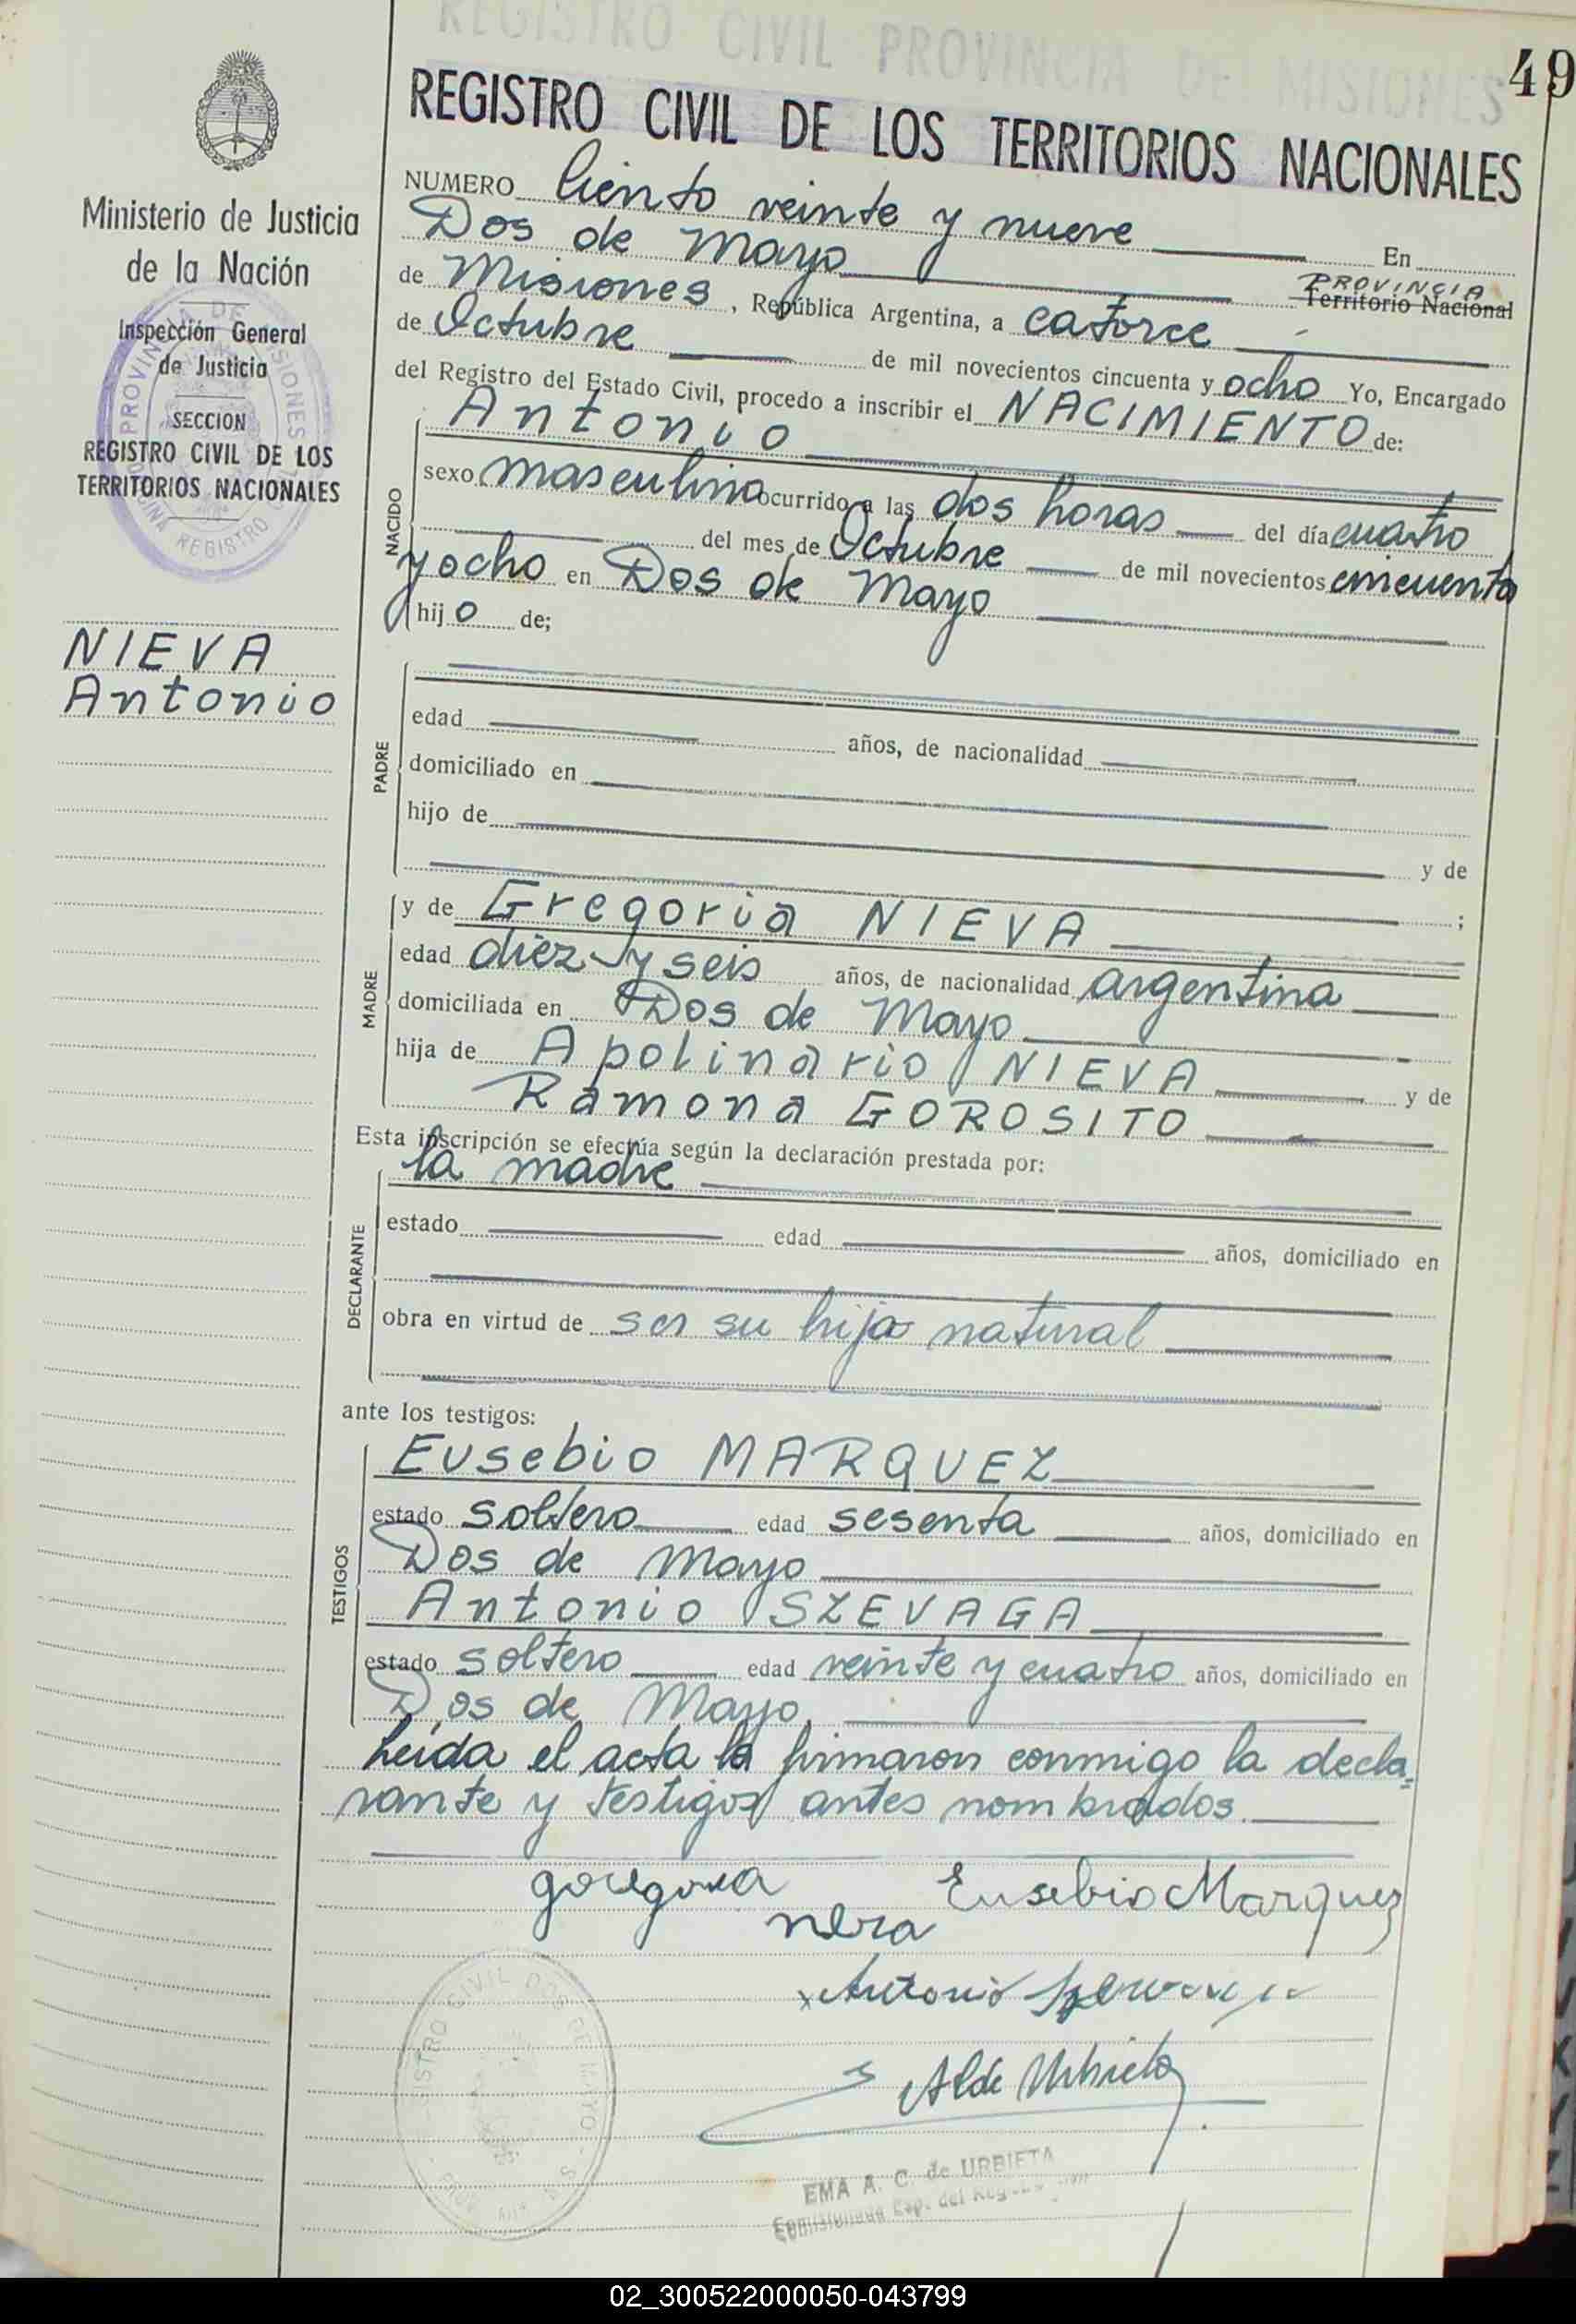 REGISTRO CIVIL PROVINCIA DE MISIONES
49
REGISTRO CIVIL DE LOS TERRITORIOS NACIONALES
Ministerio de Justicia
de la Nación
Inspección General
de Justicia
SECCION
REGISTRO CIVIL DE LOS
TERRITORIOS NACIONALES
NIEVA
Antonio
NUMERO Ciento veinte y nueve En
Dos de Mayo PROVINCIA
Territorio Nacional
de Misiones, República Argentina, a catorce
de Octubre de mil novecientos cincuenta y ocho Yo, Encargado
del Registro del Estado Civil, procedo a inscribir el NACIMIENTO de:
NACIDO
Antonio
sexo masculino ocurrido a las dos horas del día cuatro
del mes de Octubre de mil novecientos cincuenta
y ocho en Dos de Mayo
hijo de;
PADRE
edad años, de nacionalidad
domiciliado en
hijo de
y de
MADRE
y de Gregoria NIEVA ;
edad diez y seis años, de nacionalidad argentina
domiciliada en Dos de Mayo
hija de Apolinario NIEVA y de
Ramona GOROSITO
Esta inscripción se efectúa según la declaración prestada por:
DECLARANTE
la madre
estado edad años, domiciliado en
obra en virtud de ser su hijo natural
ante los testigos:
TESTIGOS
Eusebio MARQUEZ
estado soltero edad sesenta años, domiciliado en
Dos de Mayo
Antonio SZEVAGA
estado soltero edad veinte y cuatro años, domiciliado en
Dos de Mayo
Leida el acta la firmaron conmigo la decla=
rante y testigos antes nombrados.
Eusebio Marquez
Antonio
Alde Urbieta
EMA A. C. de URBIETA
02_300522000050-043799